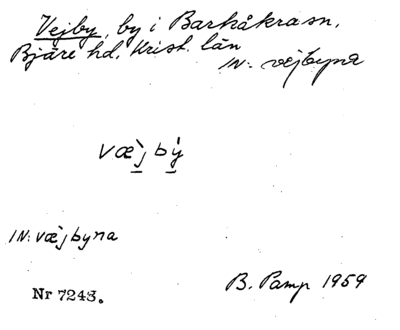 Vejby, by i Barkåkrasn.
Bjäre hd. Krist. län
IN: væjbyna
væ̀j bý
IN: væ̀jbyna
B. Pamp 1959
Nr 7243.